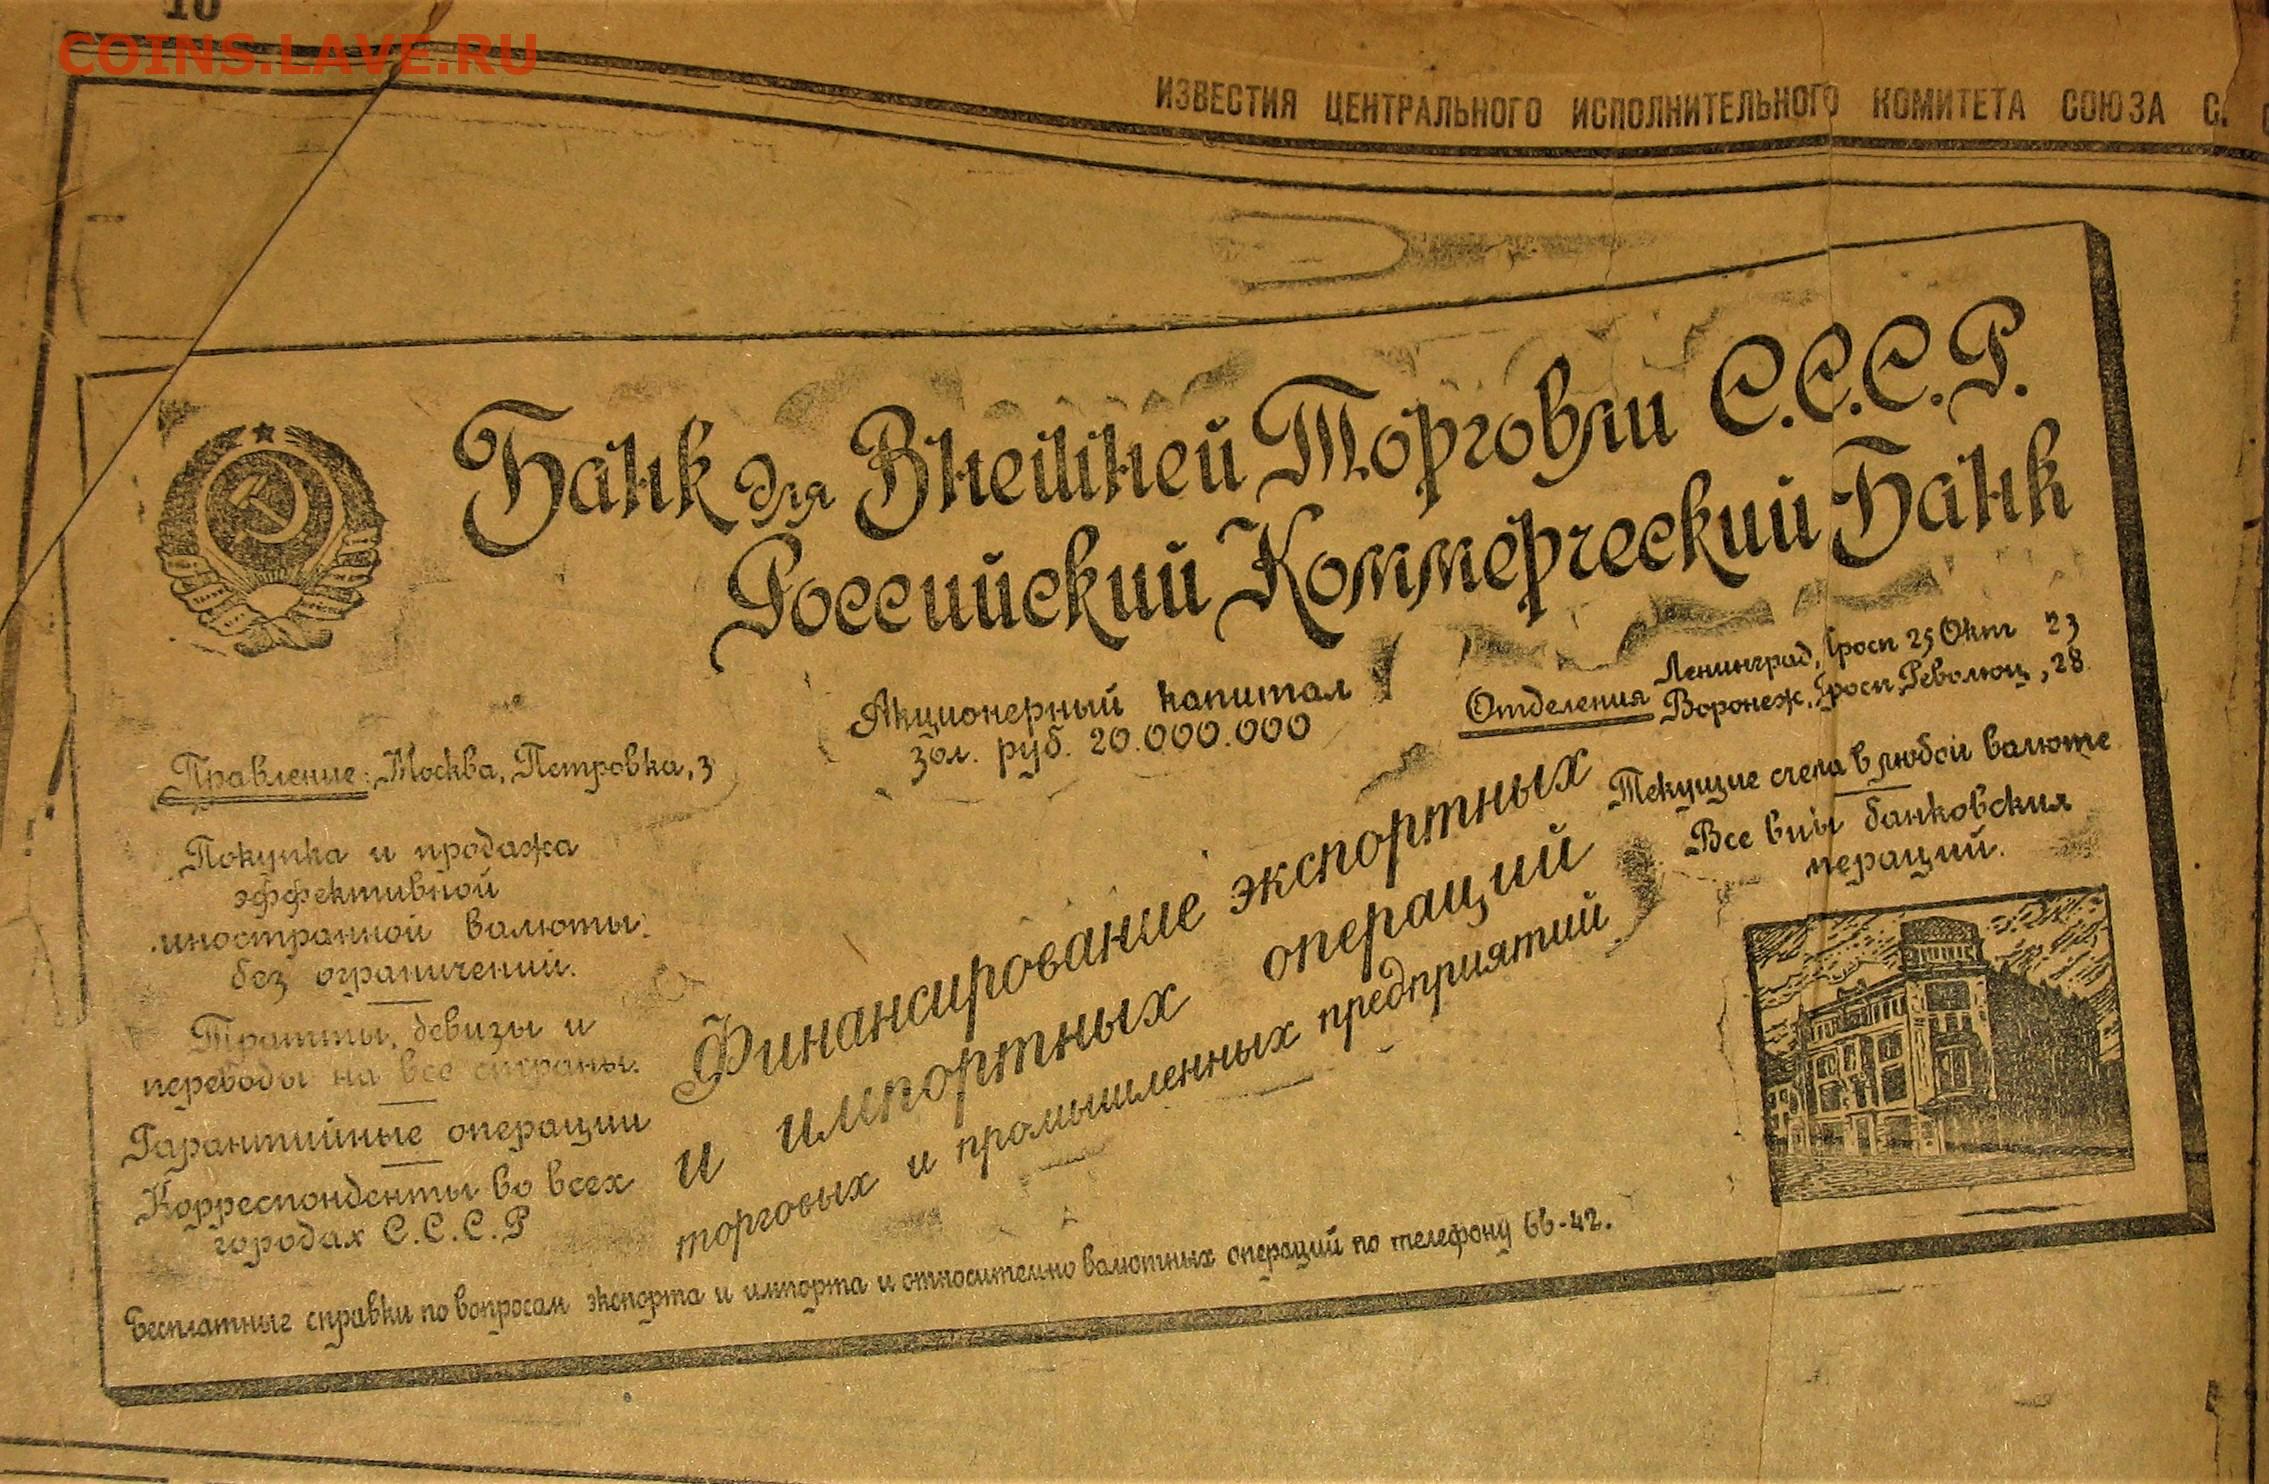 10
COINS.LAVE.RU
ИЗВЕСТИЯ ЦЕНТРАЛЬНОГО ИСПОЛНИТЕЛЬНОГО КОМИТЕТА СОЮЗА С.
Банк для Внешней Торговли С.С.С.Р.
Российский Коммерческий Банк
Акционерный капитал
зол. руб. 20.000.000
Отделения
Ленинград, Просп 25 Окт 23
Воронеж, Просп. Революц, 28
Правление: Москва, Петровка, 3
Покупка и продажа
эффективной
иностранной валюты
без ограничений.
Тратты, девизы и
переводы на все страны.
Гарантийные операции
Корреспонденты во всех
городах С.С.С.Р
Финансирование экспортных
и импортных операций
торговых и промышленных предприятий
Текущие счета в любой валюте
Все виды банковских
пераций.
Бесплатные справки по вопросам экспорта и импорта и относительно валютных операций по телефону 66-42.